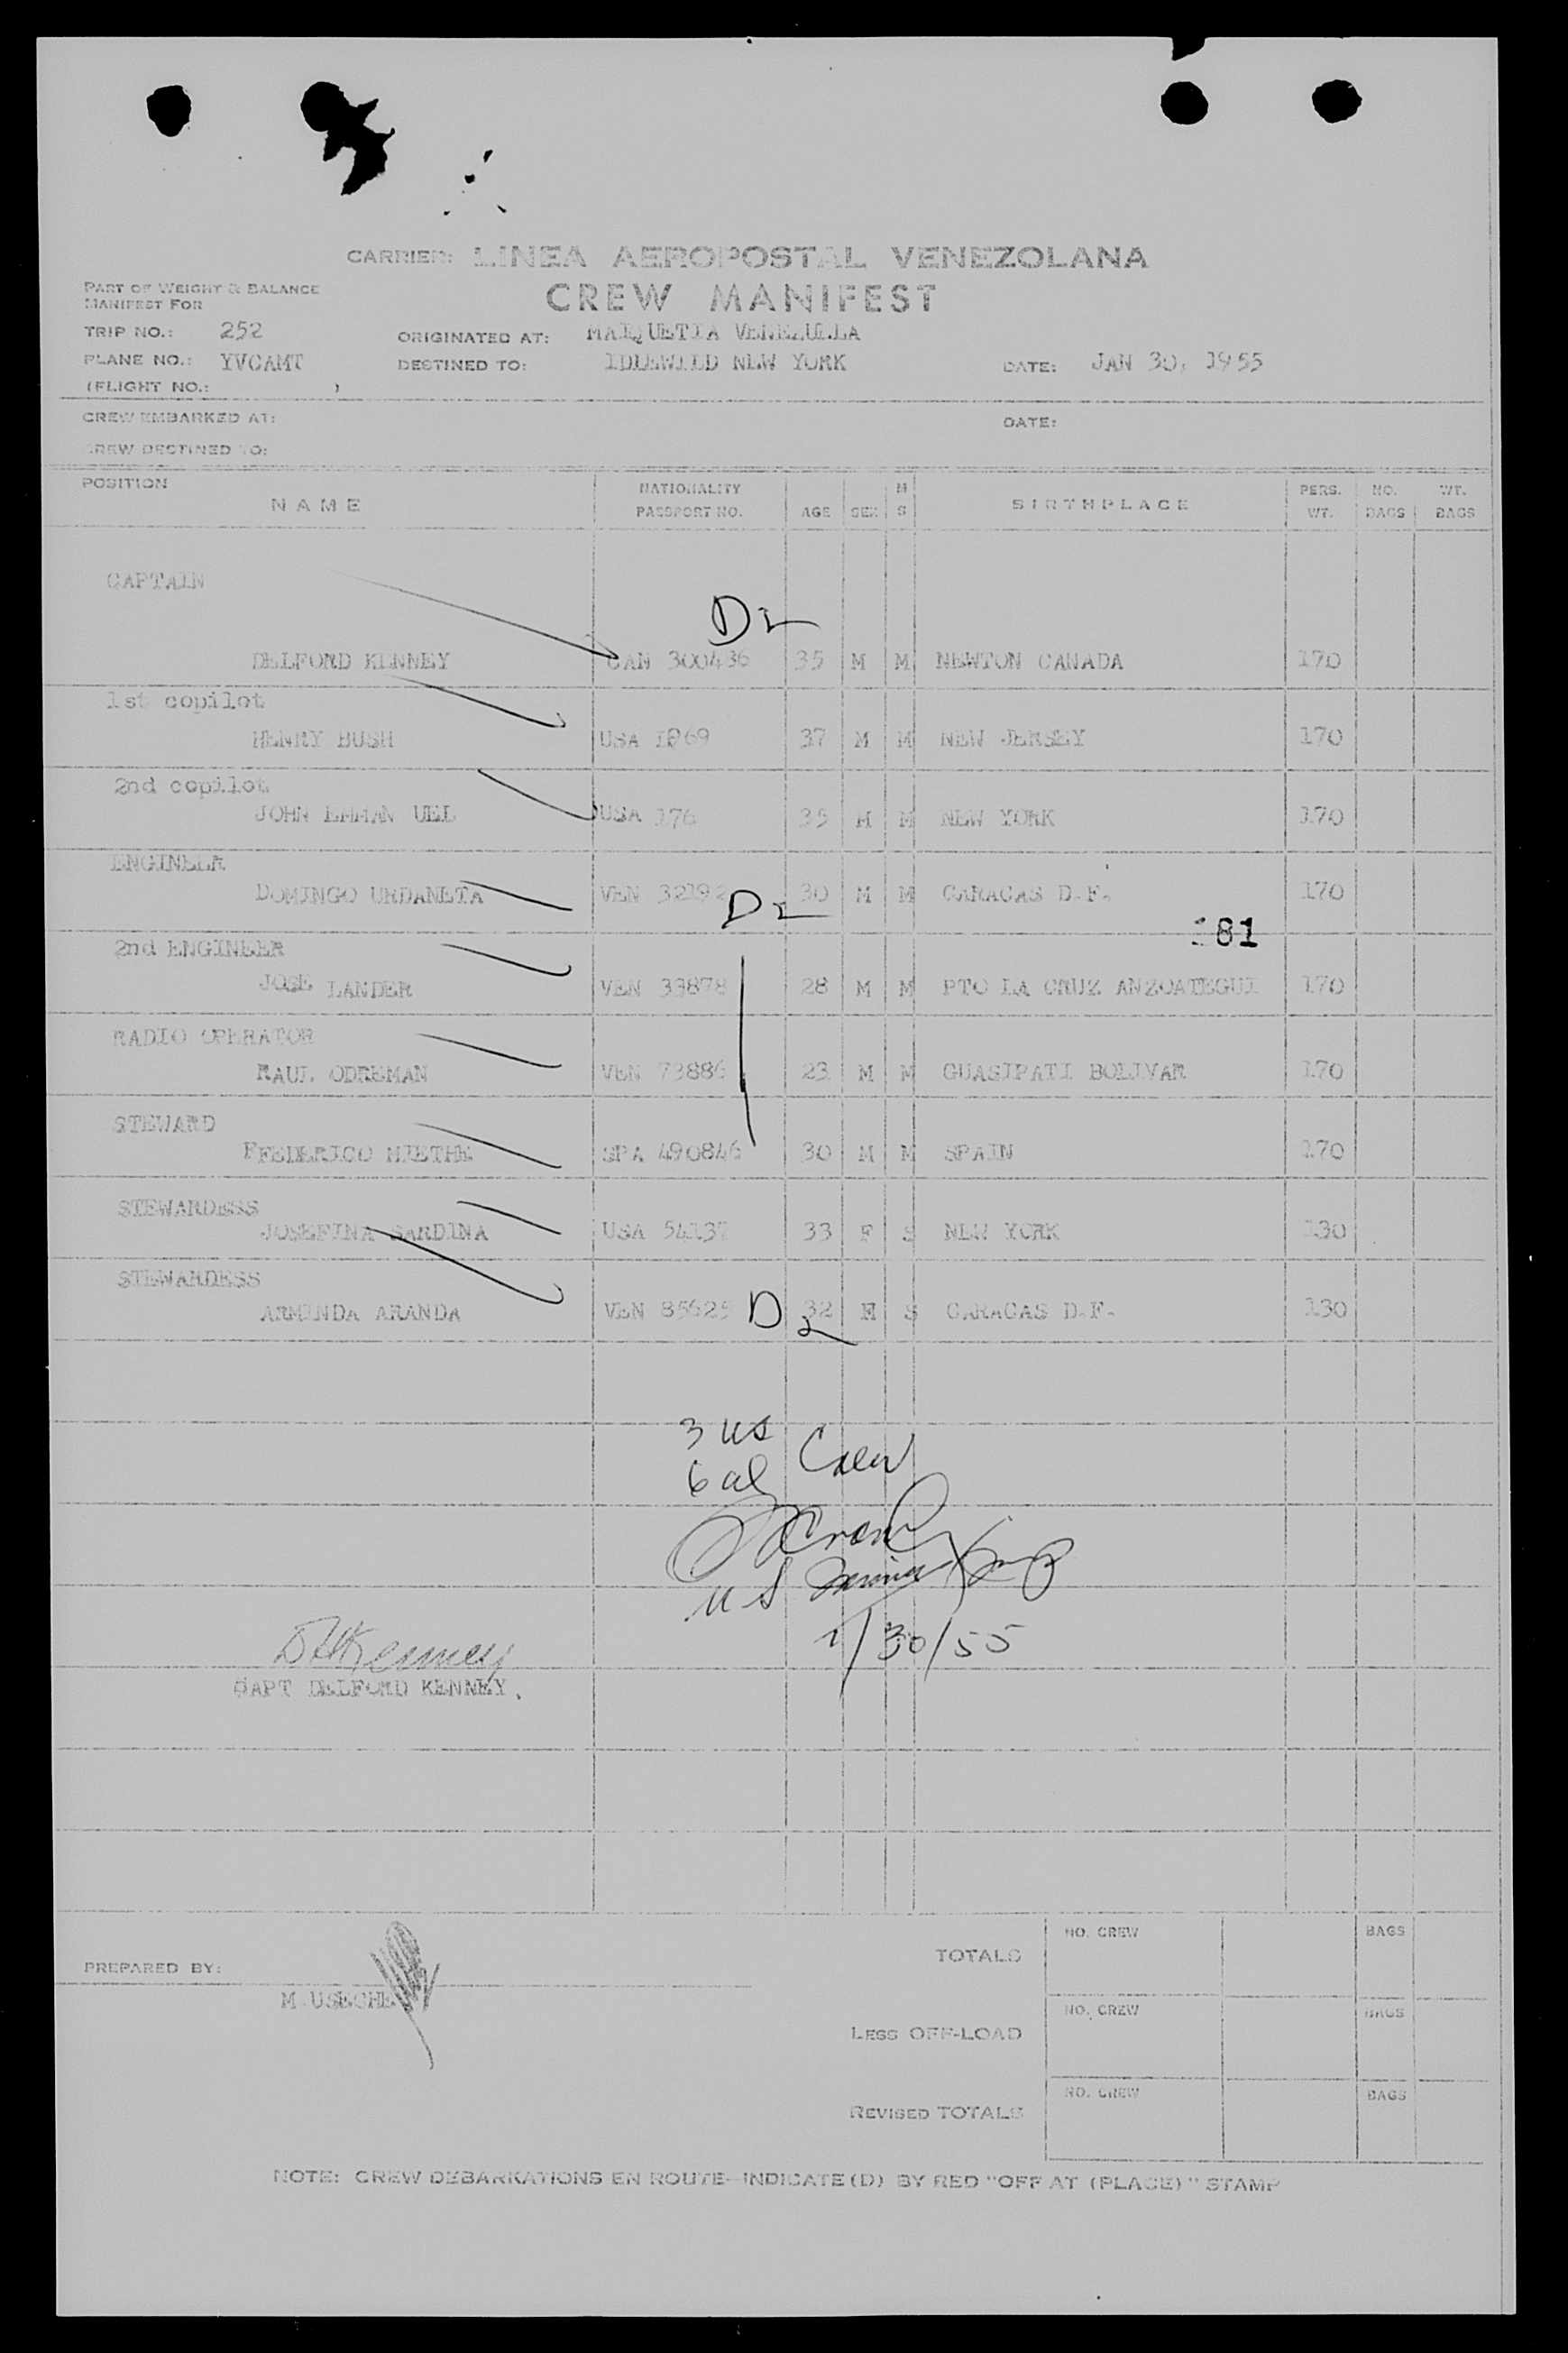 CARRIER: LINEA AEROPOSTAL VENEZOLANA
CREW MANIFEST
PART OF WEIGHT & BALANCE
MANIFEST FOR
TRIP NO.: 252 ORIGINATED AT: MAIQUETIA VENEZUELA
PLANE NO.: YVCAMT DESTINED TO: IDLEWILD NEW YORK DATE: JAN 30, 1955
(FLIGHT NO.: )
CREW EMBARKED AT: DATE:
CREW DESTINED TO:
POSITION NAME NATIONALITY PASSPORT NO. AGE SEX M S BIRTHPLACE PERS. WT. NO. BAGS WT. BAGS
CAPTAIN
D2
DELFORD KENNEY CAN 300436 35 M M NEWTON CANADA 170
1st copilot
HENRY BUSH USA 1969 37 M M NEW JERSEY 170
2nd copilot
JOHN EMMAN UEL USA 176 35 M M NEW YORK 170
ENGINEER
DOMINGO URDANETA VEN 32192 30 M M CARACAS D.F. 170
D2
181
2nd ENGINEER
JOSE LANDER VEN 33878 28 M M PTO LA CRUZ ANZOATEGUI 170
RADIO OPERATOR
RAUL ODREMAN VEN 73886 23 M M GUASIPATI BOLIVAR 170
STEWARD
FFEDERICO MIETHE SPA 490846 30 M M SPAIN 170
STEWARDESS
JOSEFINA SARDINA USA 54137 33 F S NEW YORK 130
STEWARDESS
ARMINDA ARANDA VEN 85625 D2 32 F S CARACAS D.F. 130
3 US
6 al Crew
US
1/30/55
D Kenney
CAPT DELFORD KENNEY.
PREPARED BY: M.USECHE
TOTALS NO. CREW BAGS
LESS OFF-LOAD NO. CREW BAGS
REVISED TOTALS NO. CREW BAGS
NOTE: CREW DEBARKATIONS EN ROUTE INDICATE (D) BY RED "OFF AT (PLACE)" STAMP